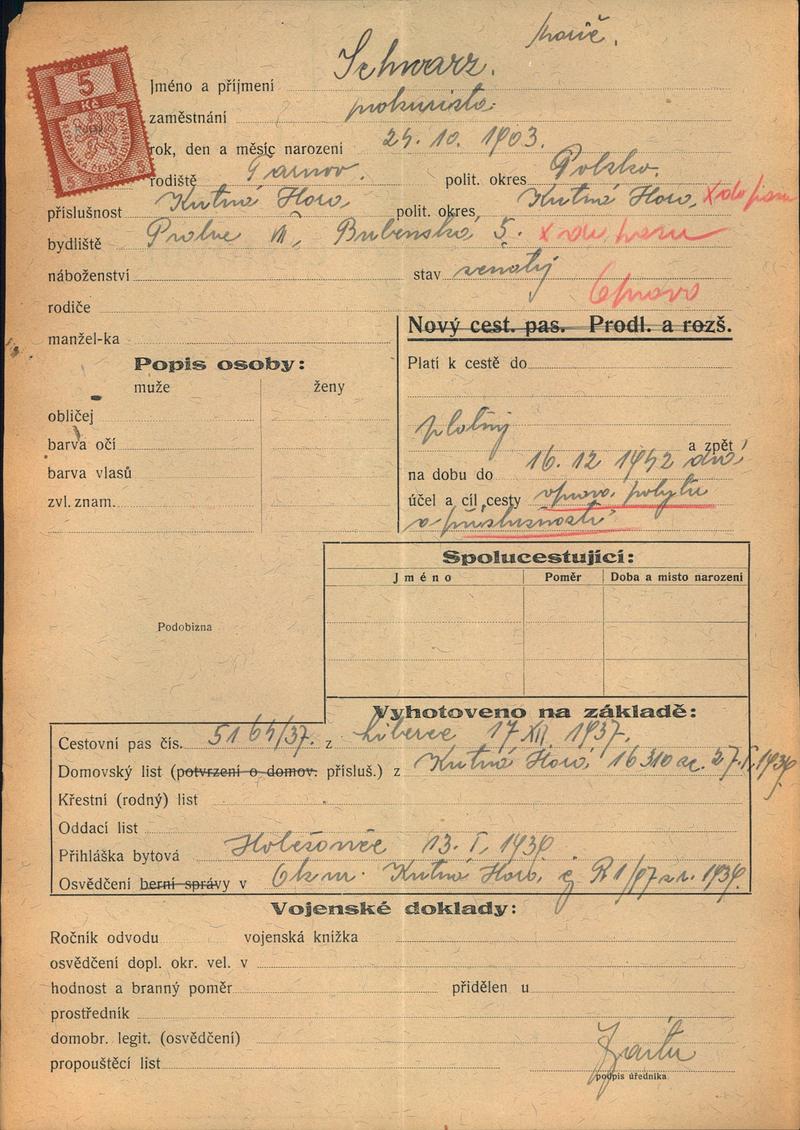 Schwarz.
KOLEK
5
Kč
REPUBLIKA ČESKOSLOVENSKÁ
5 5
Jméno a příjmení
zaměstnání prokurista
rok, den a měsíc narození 24. 10. 1903.
rodiště Tarnov. polit. okres Polsko.
příslušnost Kutná Hora polit. okres, Kutná Hora, X do pasu
bydliště Praha VII, Bubenská 5. X do pasu
náboženství stav ženatý
Oprava
rodiče
manžel-ka
Nový cest. pas. Prodl. a rozš.
Popis osoby:
muže ženy
obličej
barva očí
barva vlasů
zvl. znam.
Platí k cestě do
platný a zpět
na dobu do 16. 12 1942
účel a cíl cesty oprava pobytu
a příslušnosti
Spolucestující:
Jméno Poměr Doba a místo narození
Podobizna
Vyhotoveno na základě:
Cestovní pas čís. 5164/37. z Liberec 17 XII. 1937.
Domovský list (potvrzení o domov. přísluš.) z Kutná Hora 16310
Křestní (rodný) list
Oddací list
Přihláška bytová Holešovice 13. I. 1939
Osvědčení berní správy v Kutná Hora, č. R1/
Vojenské doklady:
Ročník odvodu vojenská knížka
osvědčení dopl. okr. vel. v
hodnost a branný poměr přidělen u
prostředník
domobr. legit. (osvědčení)
propouštěcí list
podpis úředníka